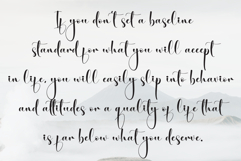 If you don't set a baseline
standard for what you will accept
in life, you will easily slip into behavior
and attitudes or a quality of life that
is far below what you deserve.